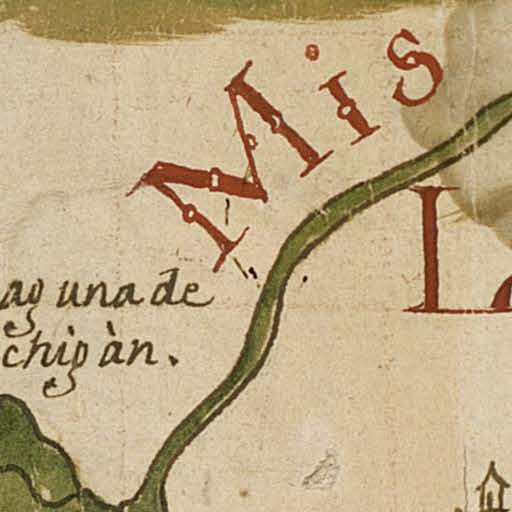 Mis
L
aguna de
chigàn.